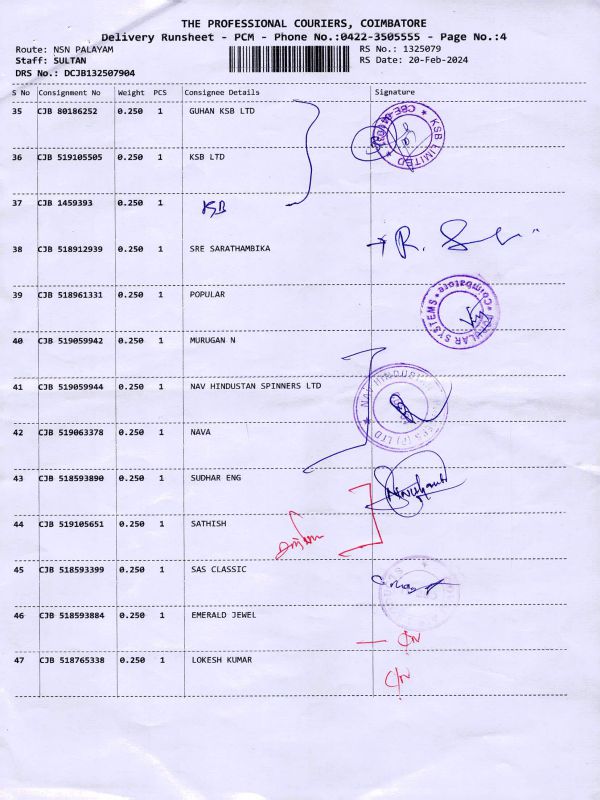 THE PROFESSIONAL COURIERS, COIMBATORE
Delivery Runsheet - PCM - Phone No.:0422-3505555 - Page No.:4
Route: NSN PALAYAM RS No.: 1325079
Staff: SULTAN RS Date: 20-Feb-2024
DRS No.: DCJB132507904
S No Consignment No Weight PCS Consignee Details Signature
35 CJB 80186252 0.250 1 GUHAN KSB LTD
KSB LIMITED
36 CJB 519105505 0.250 1 KSB LTD
37 CJB 1459393 0.250 1 KSB
38 CJB 518912939 0.250 1 SRE SARATHAMBIKA
39 CJB 518961331 0.250 1 POPULAR
POPULAR SYSTEMS * Coimbatore *
40 CJB 519059942 0.250 1 MURUGAN N
41 CJB 519059944 0.250 1 NAV HINDUSTAN SPINNERS LTD
NAV HINDUSTAN (P) LTD
42 CJB 519063378 0.250 1 NAVA
43 CJB 518593890 0.250 1 SUDHAR ENG
44 CJB 519105651 0.250 1 SATHISH
45 CJB 518593399 0.250 1 SAS CLASSIC
46 CJB 518593884 0.250 1 EMERALD JEWEL
47 CJB 518765338 0.250 1 LOKESH KUMAR